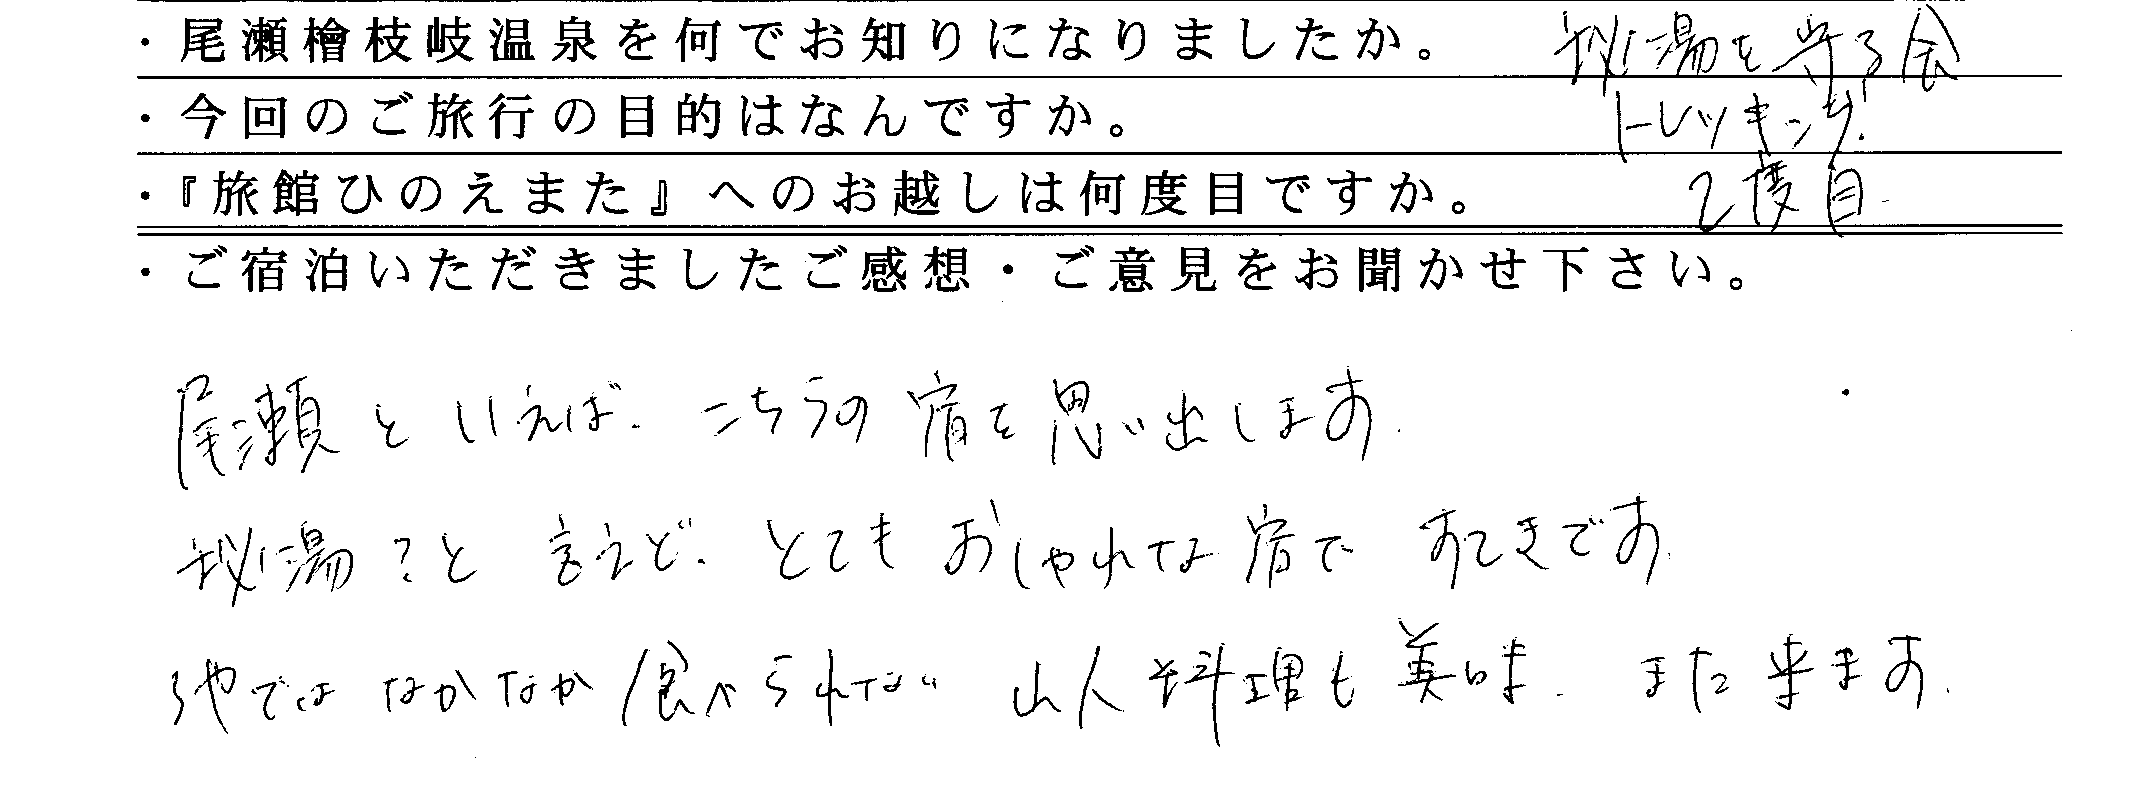 ・尾瀬檜枝岐温泉を何でお知りになりましたか。 秘湯を守る会
・今回のご旅行の目的はなんですか。 トレッキング.
・『旅館ひのえまた』へのお越しは何度目ですか。 2度目.
・ご宿泊いただきましたご感想・ご意見をお聞かせ下さい。
尾瀬といえば、こちらの宿を思い出します.
秘湯 と言えど、とてもおしゃれな宿ですてきです.
他ではなかなか食べられない山人料理も美味. また来ます.